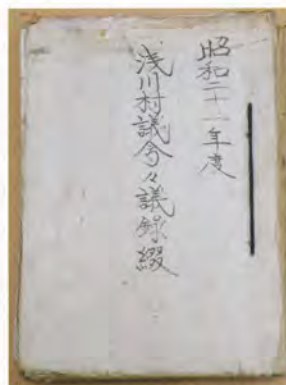 昭和二十一年度
浅川村議会々議録綴